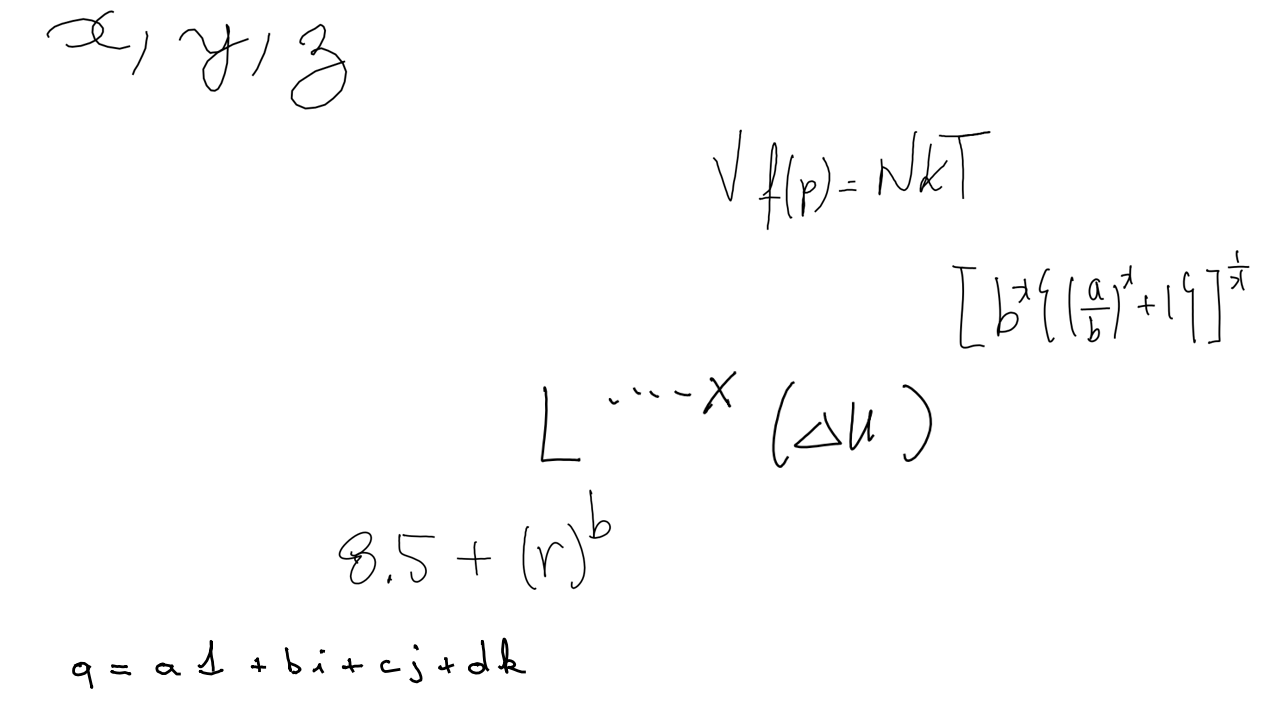 x, y, z
V f(p) = NkT
[b^x{(a/b)^x + 1}]^{1/x}
L^{....-X} (Δu)
8.5 + (r)^b
q = a1 + bi + cj + dk